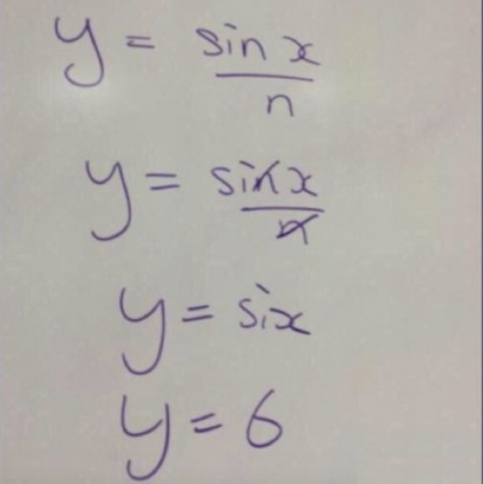 y = sin x
n
y = sinx
n
y = six
y = 6